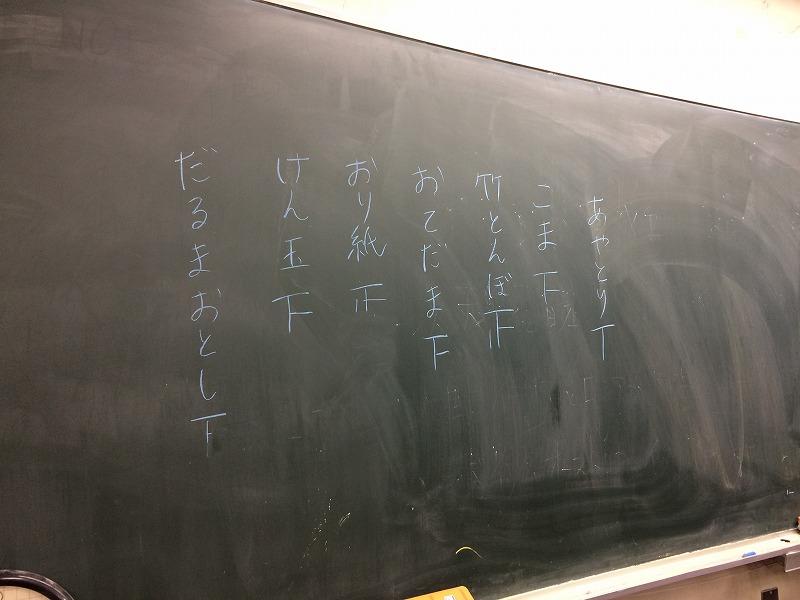 あやとり T
こま 下
竹とんぼ 正
おてだま 下
おり紙 正
けん玉 下
だるまおとし 下